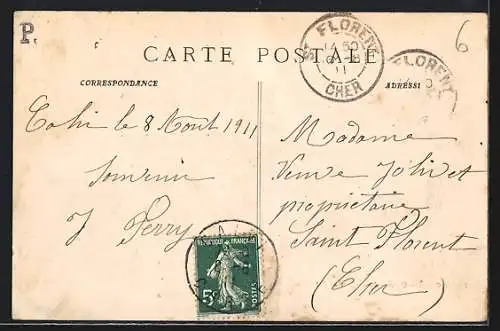 P.
6
CARTE POSTALE
CORRESPONDANCE
ADRESSE
ST FLORENT
CHER
FLORENT
le 8 Aout 1911
Souvenir
J Perry
Madame
Veuve Jolivet
propriétaire
Saint Florent
(Cher)
REPUBLIQUE FRANÇAISE
5c
POSTES